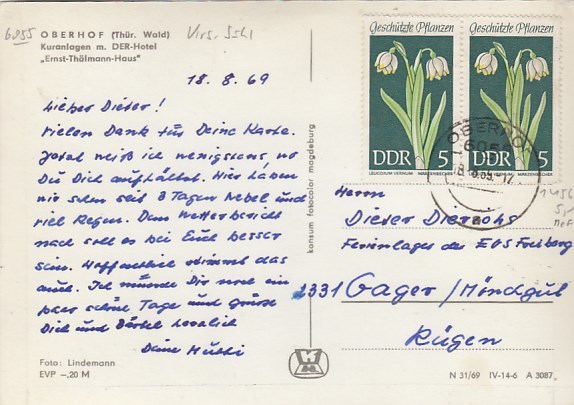 6055
OBERHOF (Thür. Wald)
Kuranlagen m. DER-Hotel
„Ernst-Thälmann-Haus"
18.8.69
Lieber Dieter!
Vielen Dank für Deine Karte.
Jetzt weiß ich wenigstens, wo
Du Dich aufhältst. Hier haben
wir schon seit 8 Tagen Nebel und
viel Regen. Dem Wetterbericht
nach soll es bei Euch besser
sein. Hoffentlich stimmt das
auch. Ich wünsche Dir noch ein
paar schöne Tage und grüße
Dich und Bärbel herzlich
Deine Mutti
Foto: Lindemann
EVP –,20 M
konsum fotocolor magdeburg
Geschützte Pflanzen
DDR 5
LEUCOJUM VERNUM MÄRZENBECHER
Geschützte Pflanzen
DDR 5
LEUCOJUM VERNUM MÄRZENBECHER
OBERHOF
6055
Herrn
Dieter Dierochs
Ferienlager des EVS Freiberg
2331 Gager / Mönchgut
Rügen
N 31/69 IV-14-6 A 3087